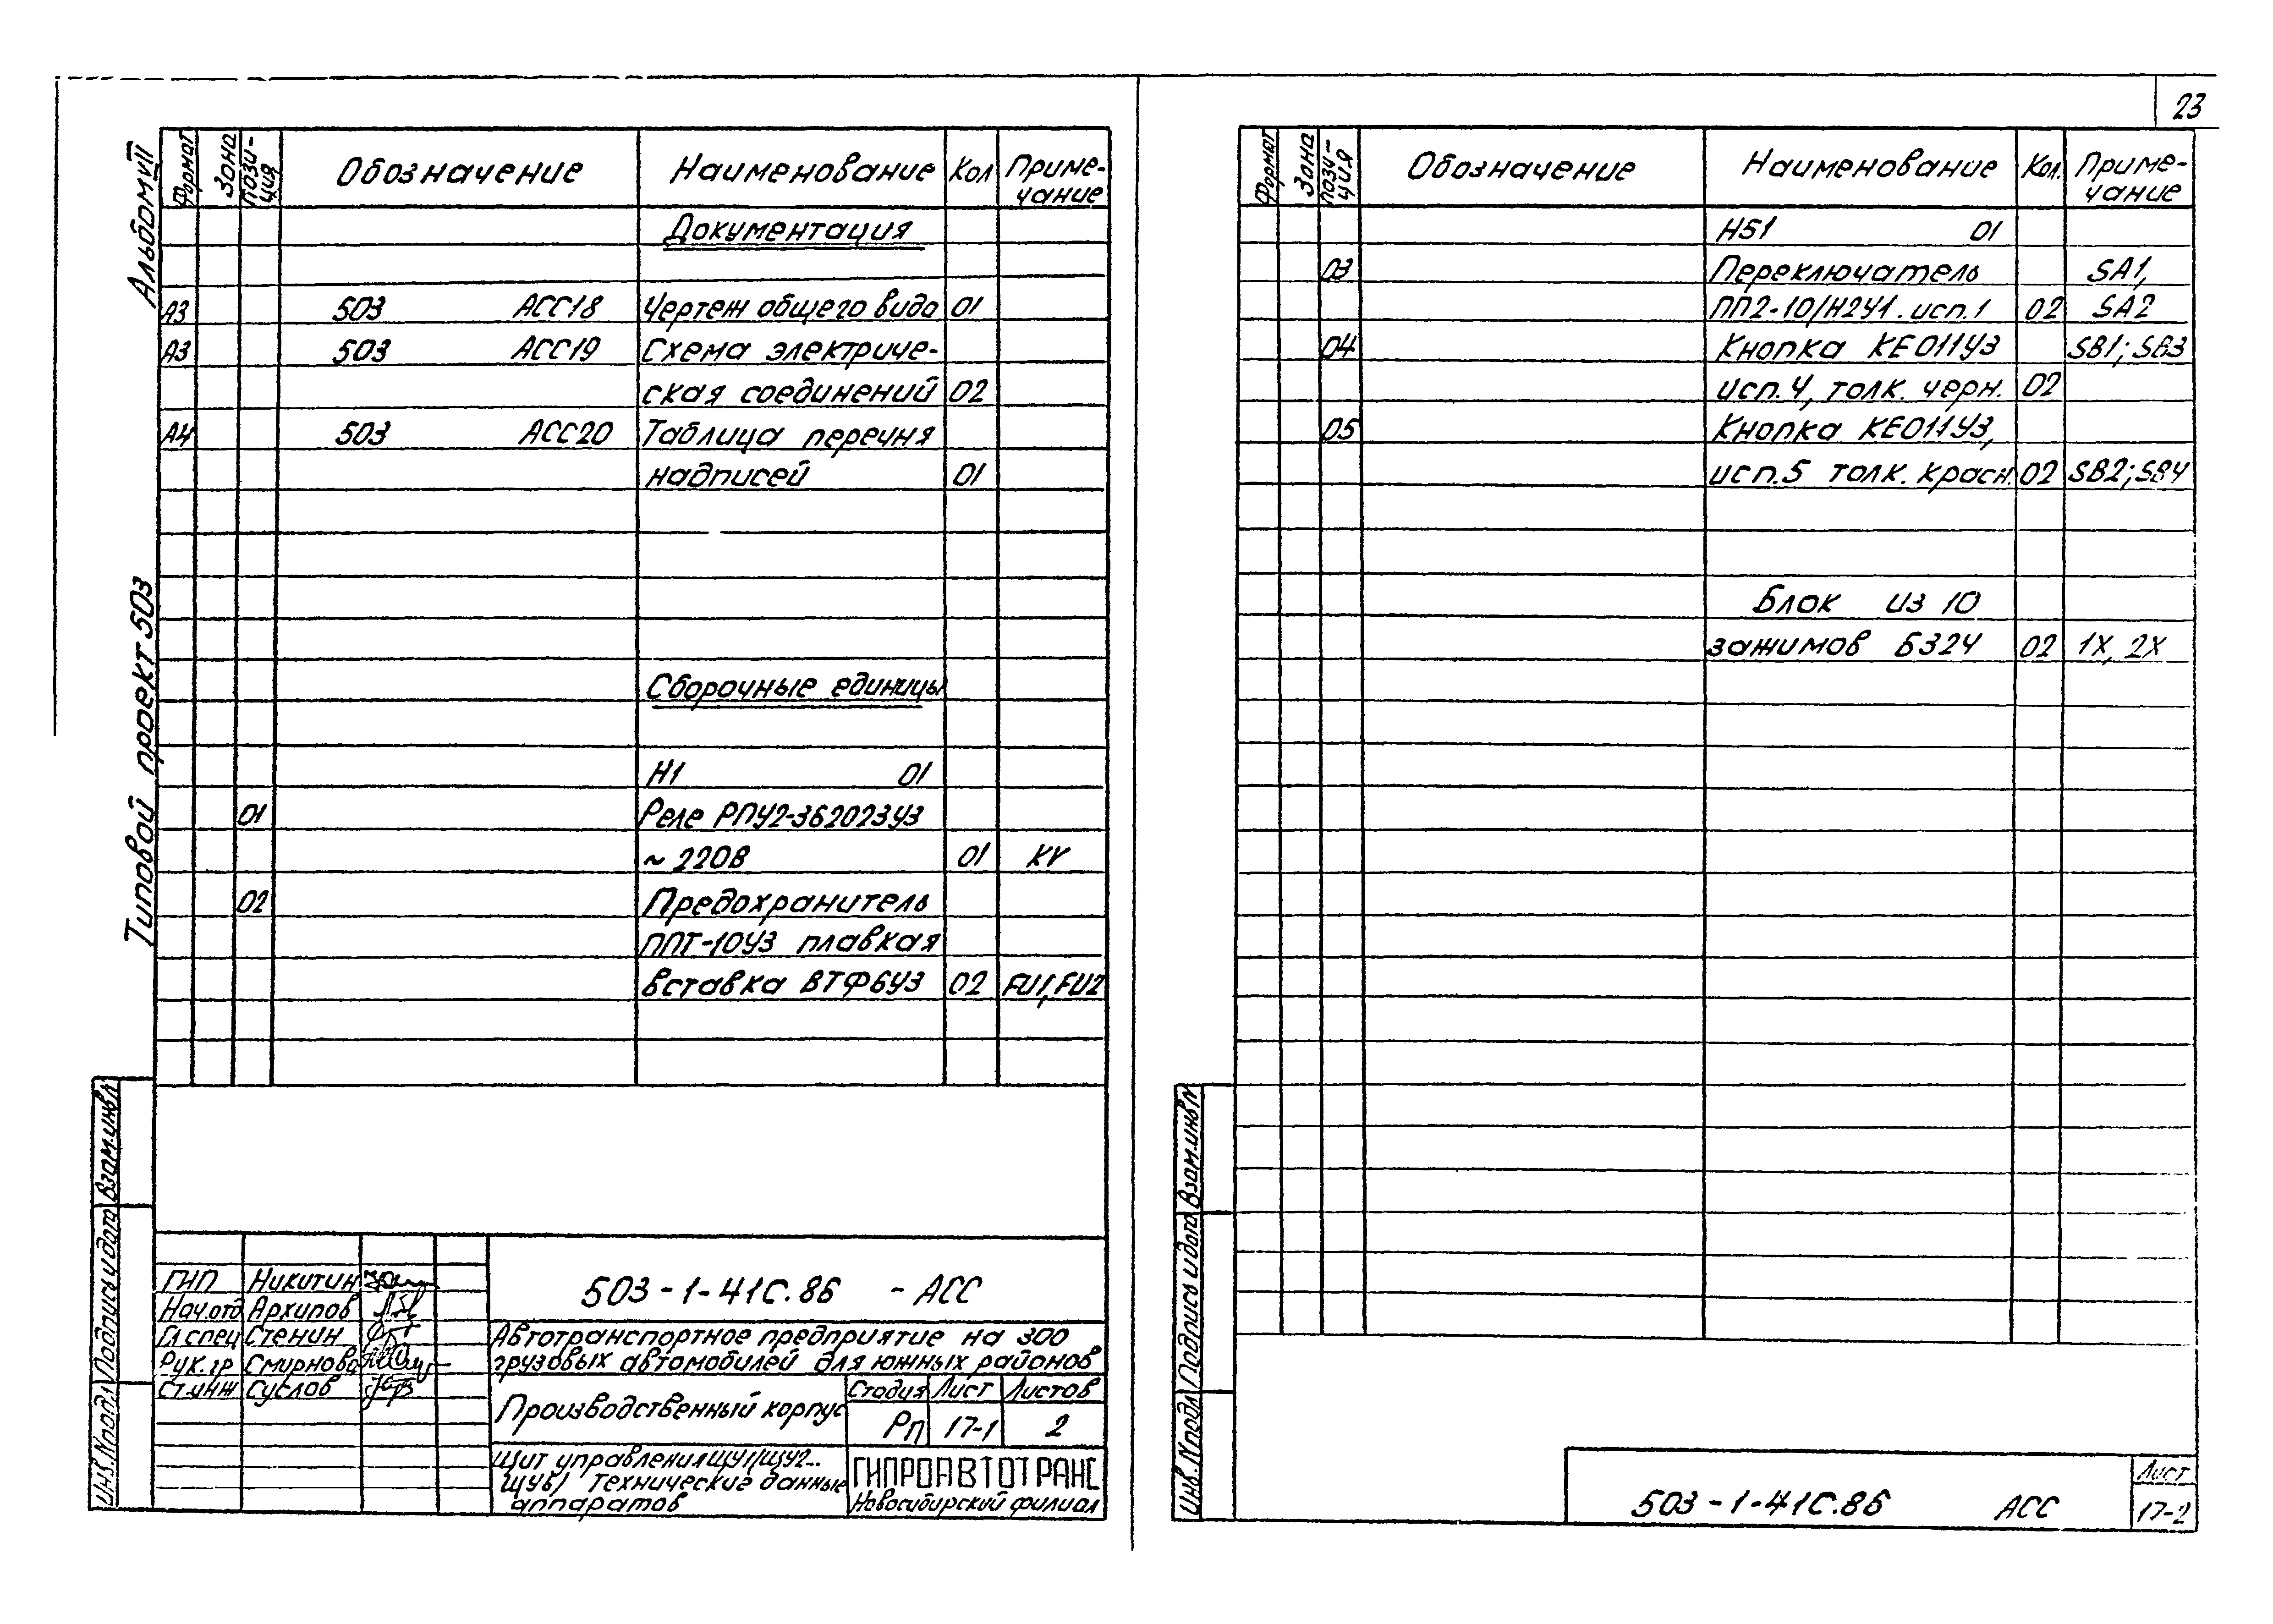 23
Альбом VII
Типовой проект 503
Формат Зона Пози- Обозначение Наименование Кол Приме-
ция чание
Документация
А3 503 АСС18 Чертеж общего вида 01
А3 503 АСС19 Схема электриче-
ская соединений 02
А4 503 АСС20 Таблица перечня
надписей 01
Сборочные единицы
Н1 01
01 Реле РПУ2-362023У3
~ 220В 01 KV
02 Предохранитель
ППТ-10У3 плавкая
вставка ВТФ6У3 02 FU1, FU2
Взам.инв.N
Подпись и дата
Инв.N подл
ГИП Никитин
Нач.отд Архипов
Гл.спец Стенин
Рук.гр Смирнова
Ст.инж Суслов
503-1-41С.86 - АСС
Автотранспортное предприятие на 300
грузовых автомобилей для южных районов
Производственный корпус
Стадия Лист Листов
РП 17-1 2
Щит управления ЩУ1/ЩУ2...
ЩУ6/ Технические данные
аппаратов
ГИПРОАВТОТРАНС
Новосибирский филиал
Формат Зона Пози- Обозначение Наименование Кол. Приме-
ция чание
Н51 01
03 Переключатель SA1,
ПП2-10/Н2У1. исп.1 02 SA2
04 Кнопка КЕ011У3 SB1; SB3
исп.4, толк. черн. 02
05 Кнопка КЕ011У3,
исп.5 толк. красн. 02 SB2; SB4
Блок из 10
зажимов Б324 02 1Х, 2Х
Взам.инв.N
Подпись и дата
Инв.N подл
503-1-41С.86 АСС
Лист
17-2